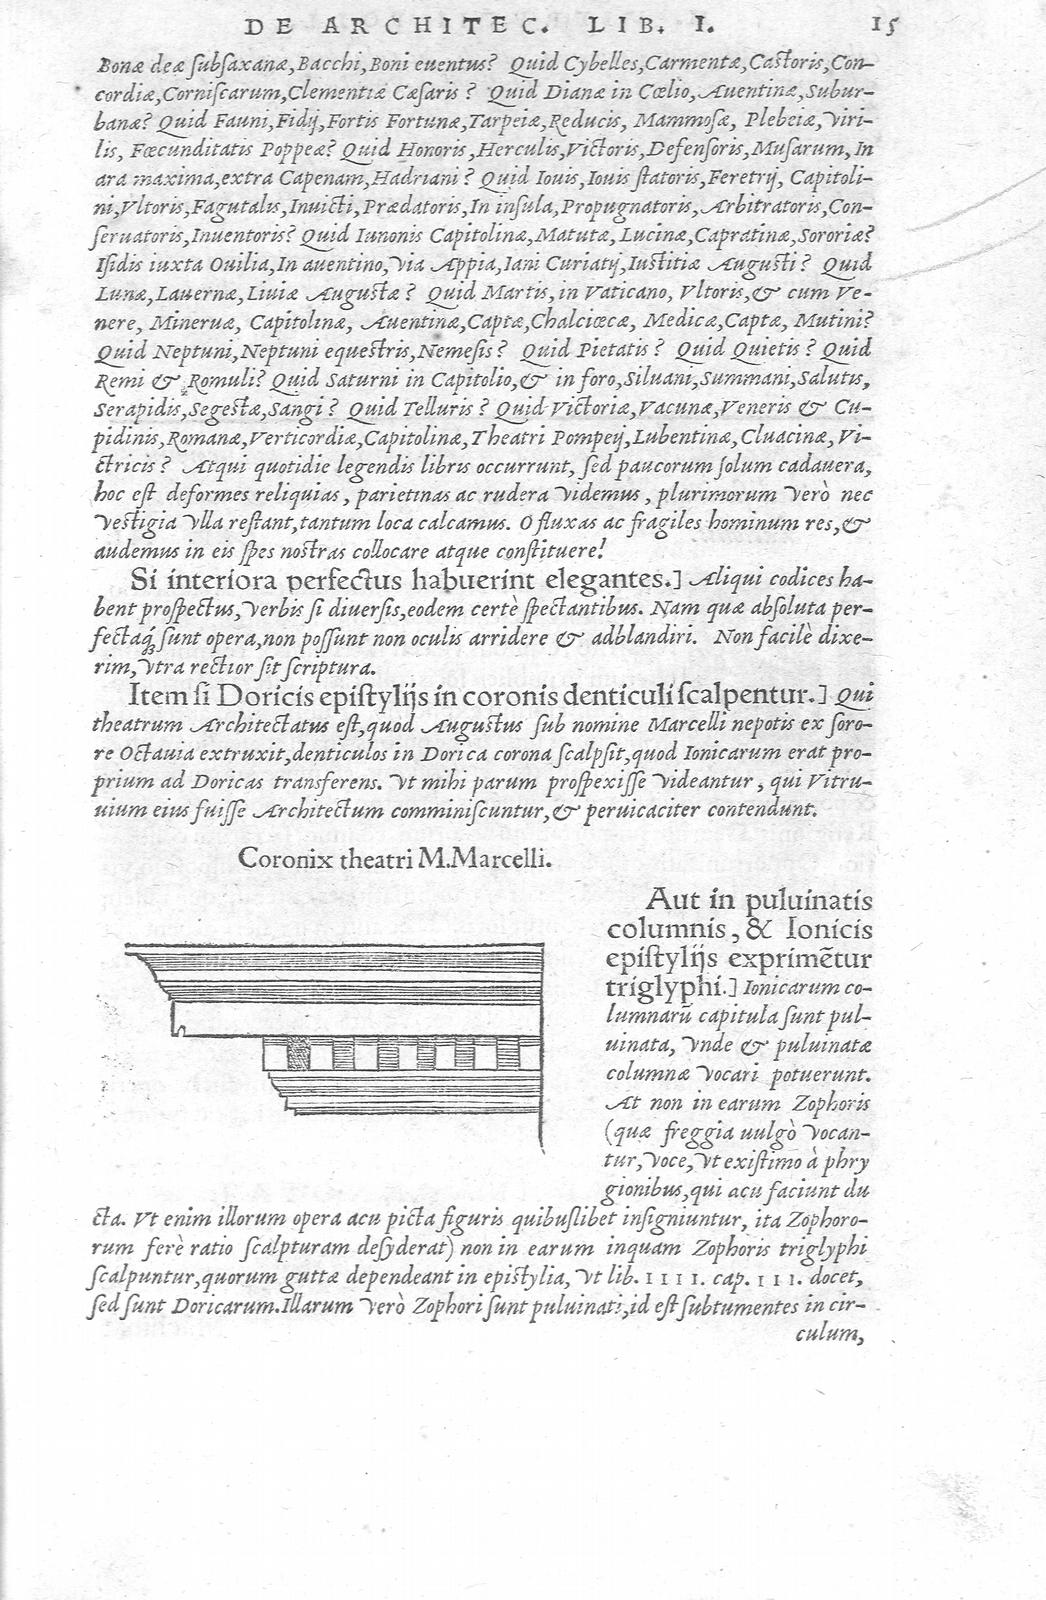 DE ARCHITEC. LIB. I. 15
Bonæ deæ ſubſaxanæ, Bacchi, Boni euentus? Quid Cybelles, Carmentæ, Caſtoris, Con-
cordiæ, Corniſcarum, Clementiæ Cæſaris? Quid Dianæ in Cœlio, Auentinæ, Subur-
banæ? Quid Fauni, Fidij, Fortis Fortunæ, Tarpeiæ, Reducis, Mammoſæ, Plebeiæ, Viri-
lis, Fœcunditatis Poppeæ? Quid Honoris, Herculis, Victoris, Defenſoris, Muſarum, In
ara maxima, extra Capenam, Hadriani? Quid Iouis, Iouis ſtatoris, Feretrij, Capitoli-
ni, Vltoris, Fagutalis, Inuicti, Prædatoris, In inſula, Propugnatoris, Arbitratoris, Con-
ſeruatoris, Inuentoris? Quid Iunonis Capitolinæ, Matutæ, Lucinæ, Capratinæ, Sororiæ?
Iſidis iuxta Ouilia, In auentino, via Appia, Iani Curiatij, Iuſtitiæ Auguſti? Quid
Lunæ, Lauernæ, Liuiæ Auguſtæ? Quid Martis, in Vaticano, Vltoris, & cum Ve-
nere, Mineruæ, Capitolinæ, Auentinæ, Captæ, Chalciœcæ, Medicæ, Captæ, Mutini?
Quid Neptuni, Neptuni equeſtris, Nemeſis? Quid Pietatis? Quid Quietis? Quid
Remi & Romuli? Quid Saturni in Capitolio, & in foro, Siluani, Summani, Salutis,
Serapidis, Segeſtæ, Sangi? Quid Telluris? Quid Victoriæ, Vacunæ, Veneris & Cu-
pidinis, Romanæ, Verticordiæ, Capitolinæ, Theatri Pompeij, Lubentinæ, Cluacinæ, Vi-
ctricis? Atqui quotidie legendis libris occurrunt, ſed paucorum ſolum cadauera,
hoc eſt deformes reliquias, parietinas ac rudera videmus, plurimorum verò nec
veſtigia vlla reſtant, tantum loca calcamus. O fluxas ac fragiles hominum res, &
audemus in eis ſpes noſtras collocare atque conſtituere!
Si interiora perfectus habuerint elegantes.] Aliqui codices ha-
bent proſpectus, verbis ſi diuerſis, eodem certè ſpectantibus. Nam quæ abſoluta per-
fectaq́; ſunt opera, non poſſunt non oculis arridere & adblandiri. Non facilè dixe-
rim, vtra rectior ſit ſcriptura.
Item ſi Doricis epiſtylijs in coronis denticuli ſcalpentur.] Qui
theatrum Architectatus eſt, quod Auguſtus ſub nomine Marcelli nepotis ex ſoro-
re Octauia extruxit, denticulos in Dorica corona ſcalpſit, quod Ionicarum erat pro-
prium ad Doricas transferens. Vt mihi parum proſpexiſſe videantur, qui Vitru-
uium eius fuiſſe Architectum comminiſcuntur, & peruicaciter contendunt.
Coronix theatri M. Marcelli.
Aut in puluinatis
columnis, & Ionicis
epiſtylijs exprimẽtur
triglyphi.] Ionicarum co-
lumnarũ capitula ſunt pul-
uinata, vnde & puluinatæ
columnæ vocari potuerunt.
At non in earum Zophoris
(quæ freggia uulgò vocan-
tur, voce, vt exiſtimo à phry
gionibus, qui acu faciunt du
cta. Vt enim illorum opera acu picta figuris quibuſlibet inſigniuntur, ita Zophoro-
rum ferè ratio ſcalpturam deſyderat) non in earum inquam Zophoris triglyphi
ſcalpuntur, quorum guttæ dependeant in epiſtylia, vt lib. IIII. cap. III. docet,
ſed ſunt Doricarum. Illarum verò Zophori ſunt puluinati, id eſt ſubtumentes in cir-
culum,